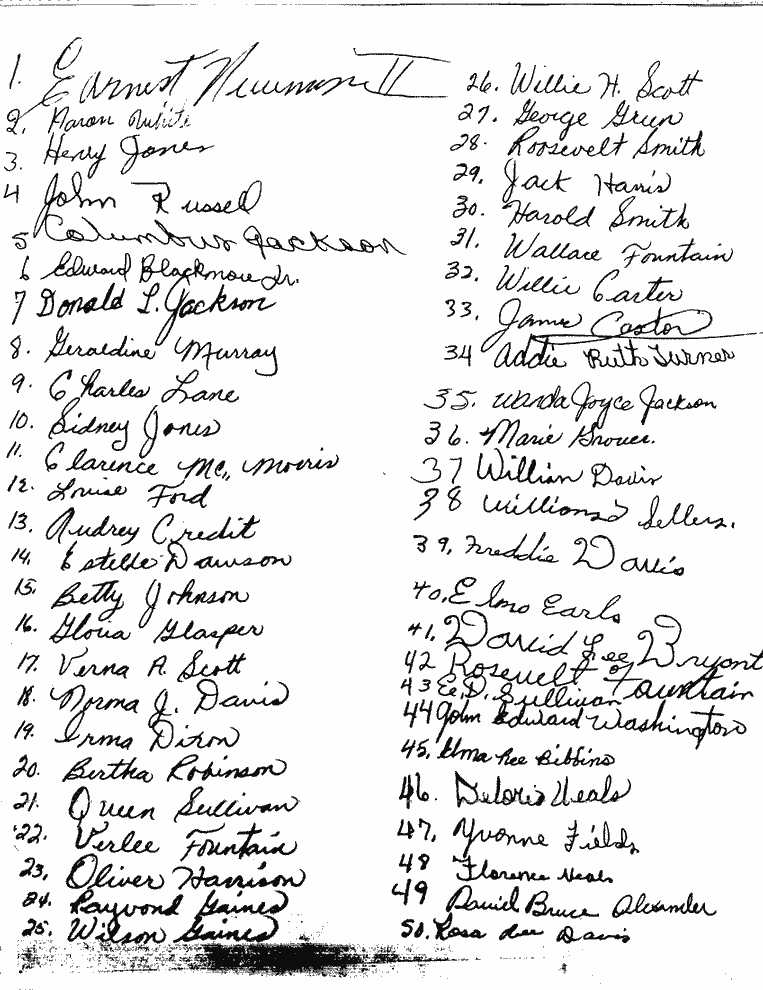 1. Earnest Neumon II
2. Aaron White
3. Henry Jones
4 John Russell
5 Columbus Jackson
6 Edward Blackmore Jr.
7 Donald L. Jackson
8. Geraldine Murray
9. Charles Lane
10. Sidney Jones
11. Clarence Mc, Morris
12. Louise Ford
13. Audrey Credit
14. Estelle Dawson
15. Betty Johnson
16. Gloria Glasper
17. Verna A. Scott
18. Norma J. Davis
19. Irma Dixon
20. Bertha Robinson
21. Queen Sullivan
22. Verlee Fountain
23. Oliver Harrison
24. Rayvond Gaines
25. Wilson Gaines
26. Willie H. Scott
27. George Green
28. Roosevelt Smith
29. Jack Harris
30. Harold Smith
31. Wallace Fountain
32. Willie Carter
33. James Castor
34 Addie Ruth Turner
35. Wanda Joyce Jackson
36. Marie Grover.
37 William Davis
38 Sellers.
39. Freddie Davis
40. Elmo Earls
41. David Lee Bryant
42 Rosevelt Fountain
43 Ed. D. Sullivan
44 John Edward Washington
45. Elma Lee Bibbins
46. Deloris Neals
47. Yvonne Fields
48 Florence Neals
49 David Bruce Alexander
50. Rosa Lee Davis